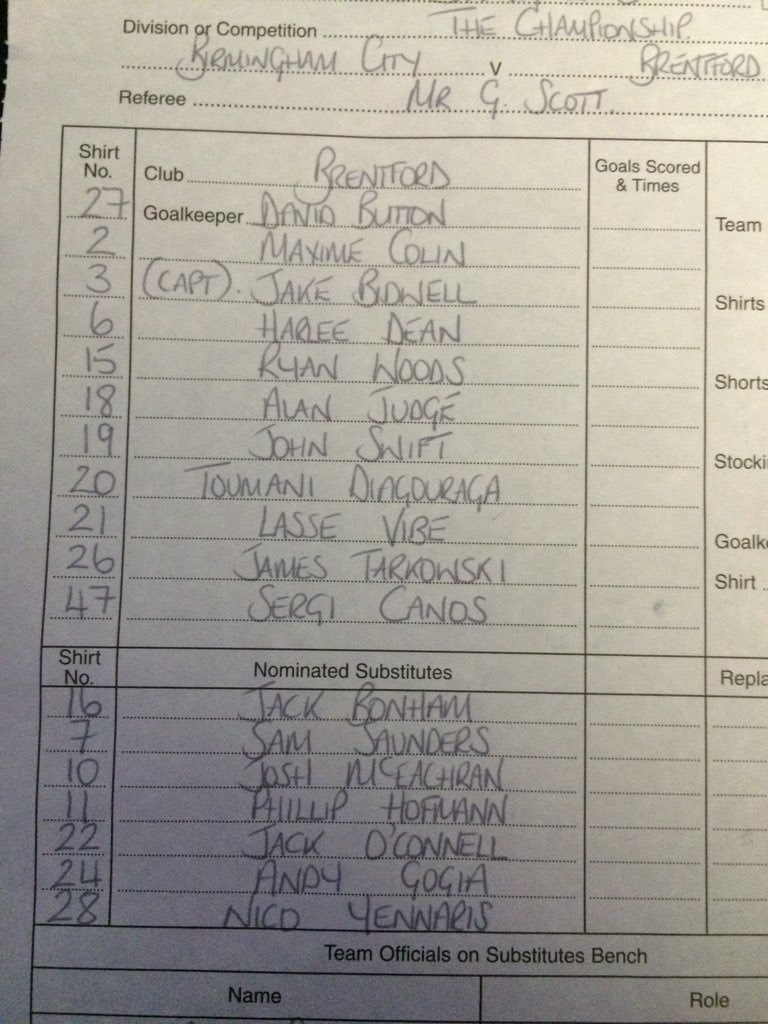 Division or Competition THE CHAMPIONSHIP
BIRMINGHAM CITY v BRENTFORD
Referee MR G. SCOTT.
Shirt No. Club BRENTFORD Goals Scored & Times
27 Goalkeeper DAVID BUTTON Team
2 MAXIME COLIN
3 (CAPT). JAKE BIDWELL Shirts
6 HARLEE DEAN
15 RYAN WOODS Shorts
18 ALAN JUDGE
19 JOHN SWIFT Stocki
20 TOUMANI DIAGOURAGA
21 LASSE VIBE Goalk
26 JAMES TARKOWSKI Shirt
47 SERGI CANOS
Shirt No. Nominated Substitutes Repla
16 JACK BONHAM
7 SAM SAUNDERS
10 JOSH MCEACHRAN
11 PHILLIP HOFMANN
22 JACK O'CONNELL
24 ANDY GOGIA
28 NICO YENNARIS
Team Officials on Substitutes Bench
Name Role